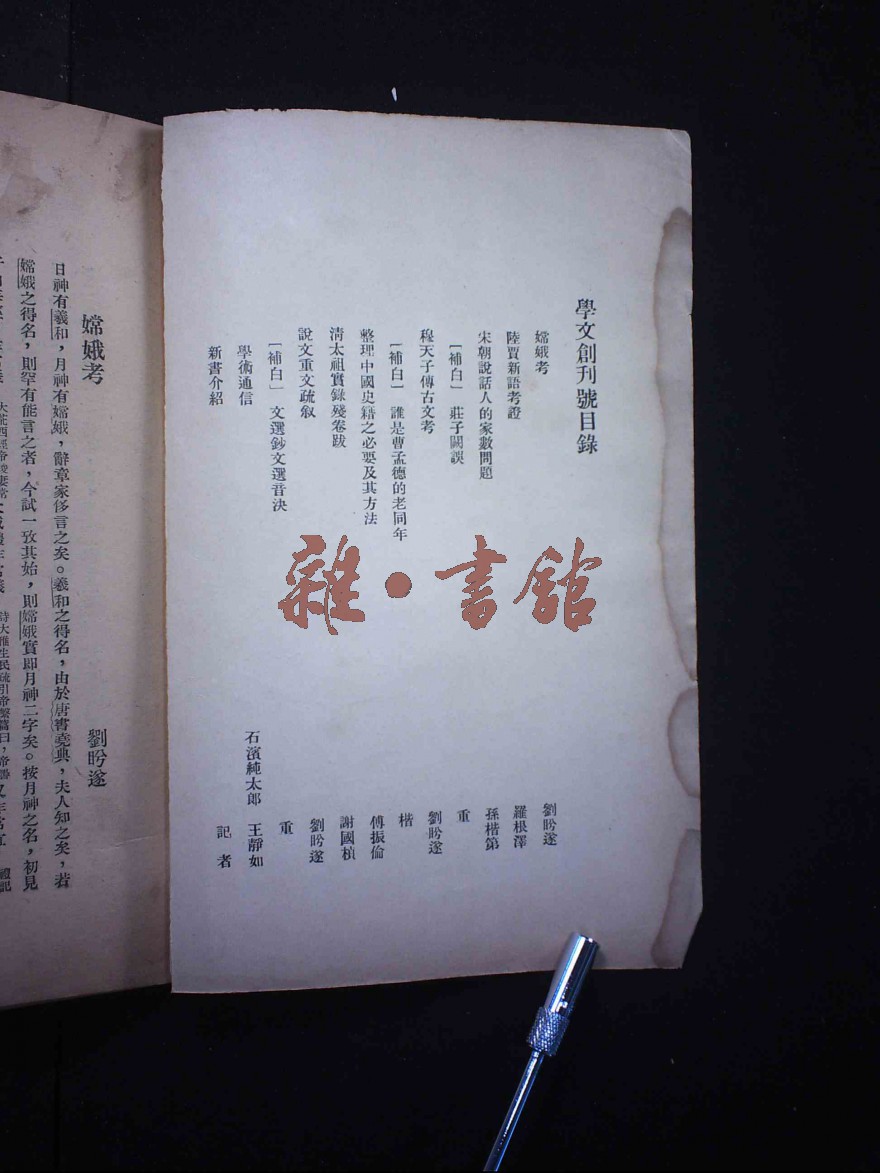 學文創刊號目錄
嫦娥考 劉盼遂
陸賈新語考證 羅根澤
宋朝說話人的家數問題 孫楷第
［補白］ 莊子闕誤 重
穆天子傳古文考 劉盼遂
［補白］ 誰是曹孟德的老同年 楷
整理中國史籍之必要及其方法 傅振倫
清太祖實錄殘卷跋 謝國楨
說文重文疏叙 劉盼遂
［補白］ 文選鈔文選音決 重
學術通信 石濱純太郎 王靜如
新書介紹 記者
雜·書館
嫦娥考
劉盼遂
日神有羲和，月神有嫦娥，辭章家侈言之矣。羲和之得名，由於唐書堯典，夫人知之矣，若
嫦娥之得名，則罕有能言之者，今試一攷其始，則嫦娥實即月神二字矣。按月神之名，初見